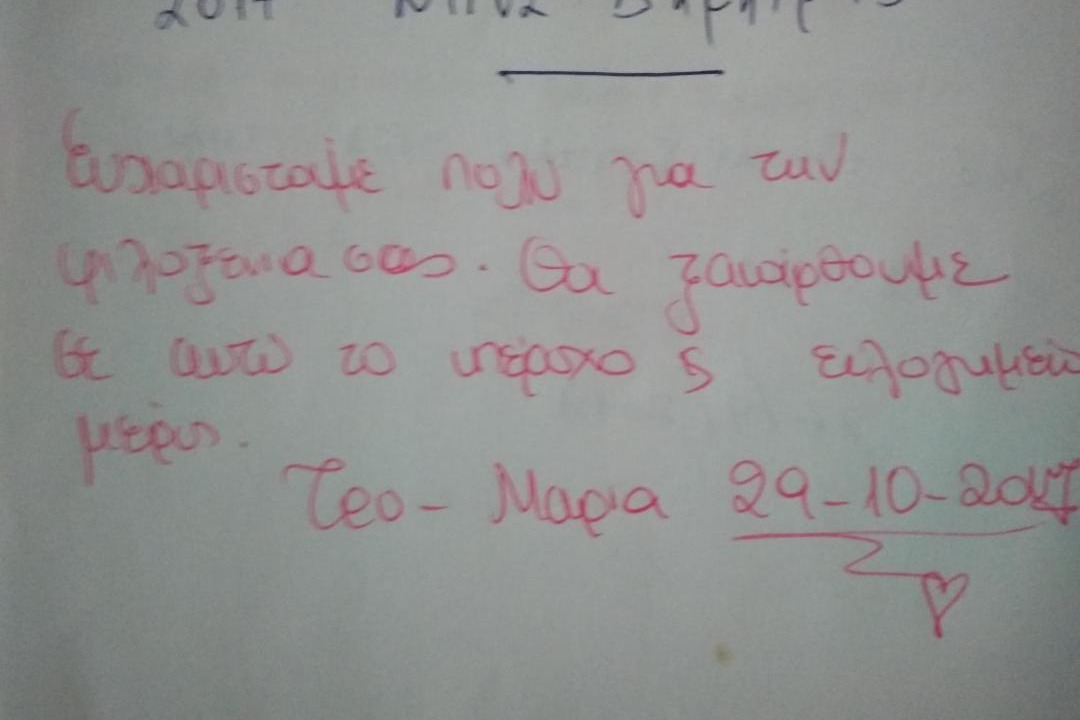 2017
Ευχαρισταμε πολυ για την
φιλοξενια σας. Θα ξαναέρθουμε
σε αυτο το υπέροχο ς ευλογημενο
μερος.
Τεο - Μαρια 29-10-2017